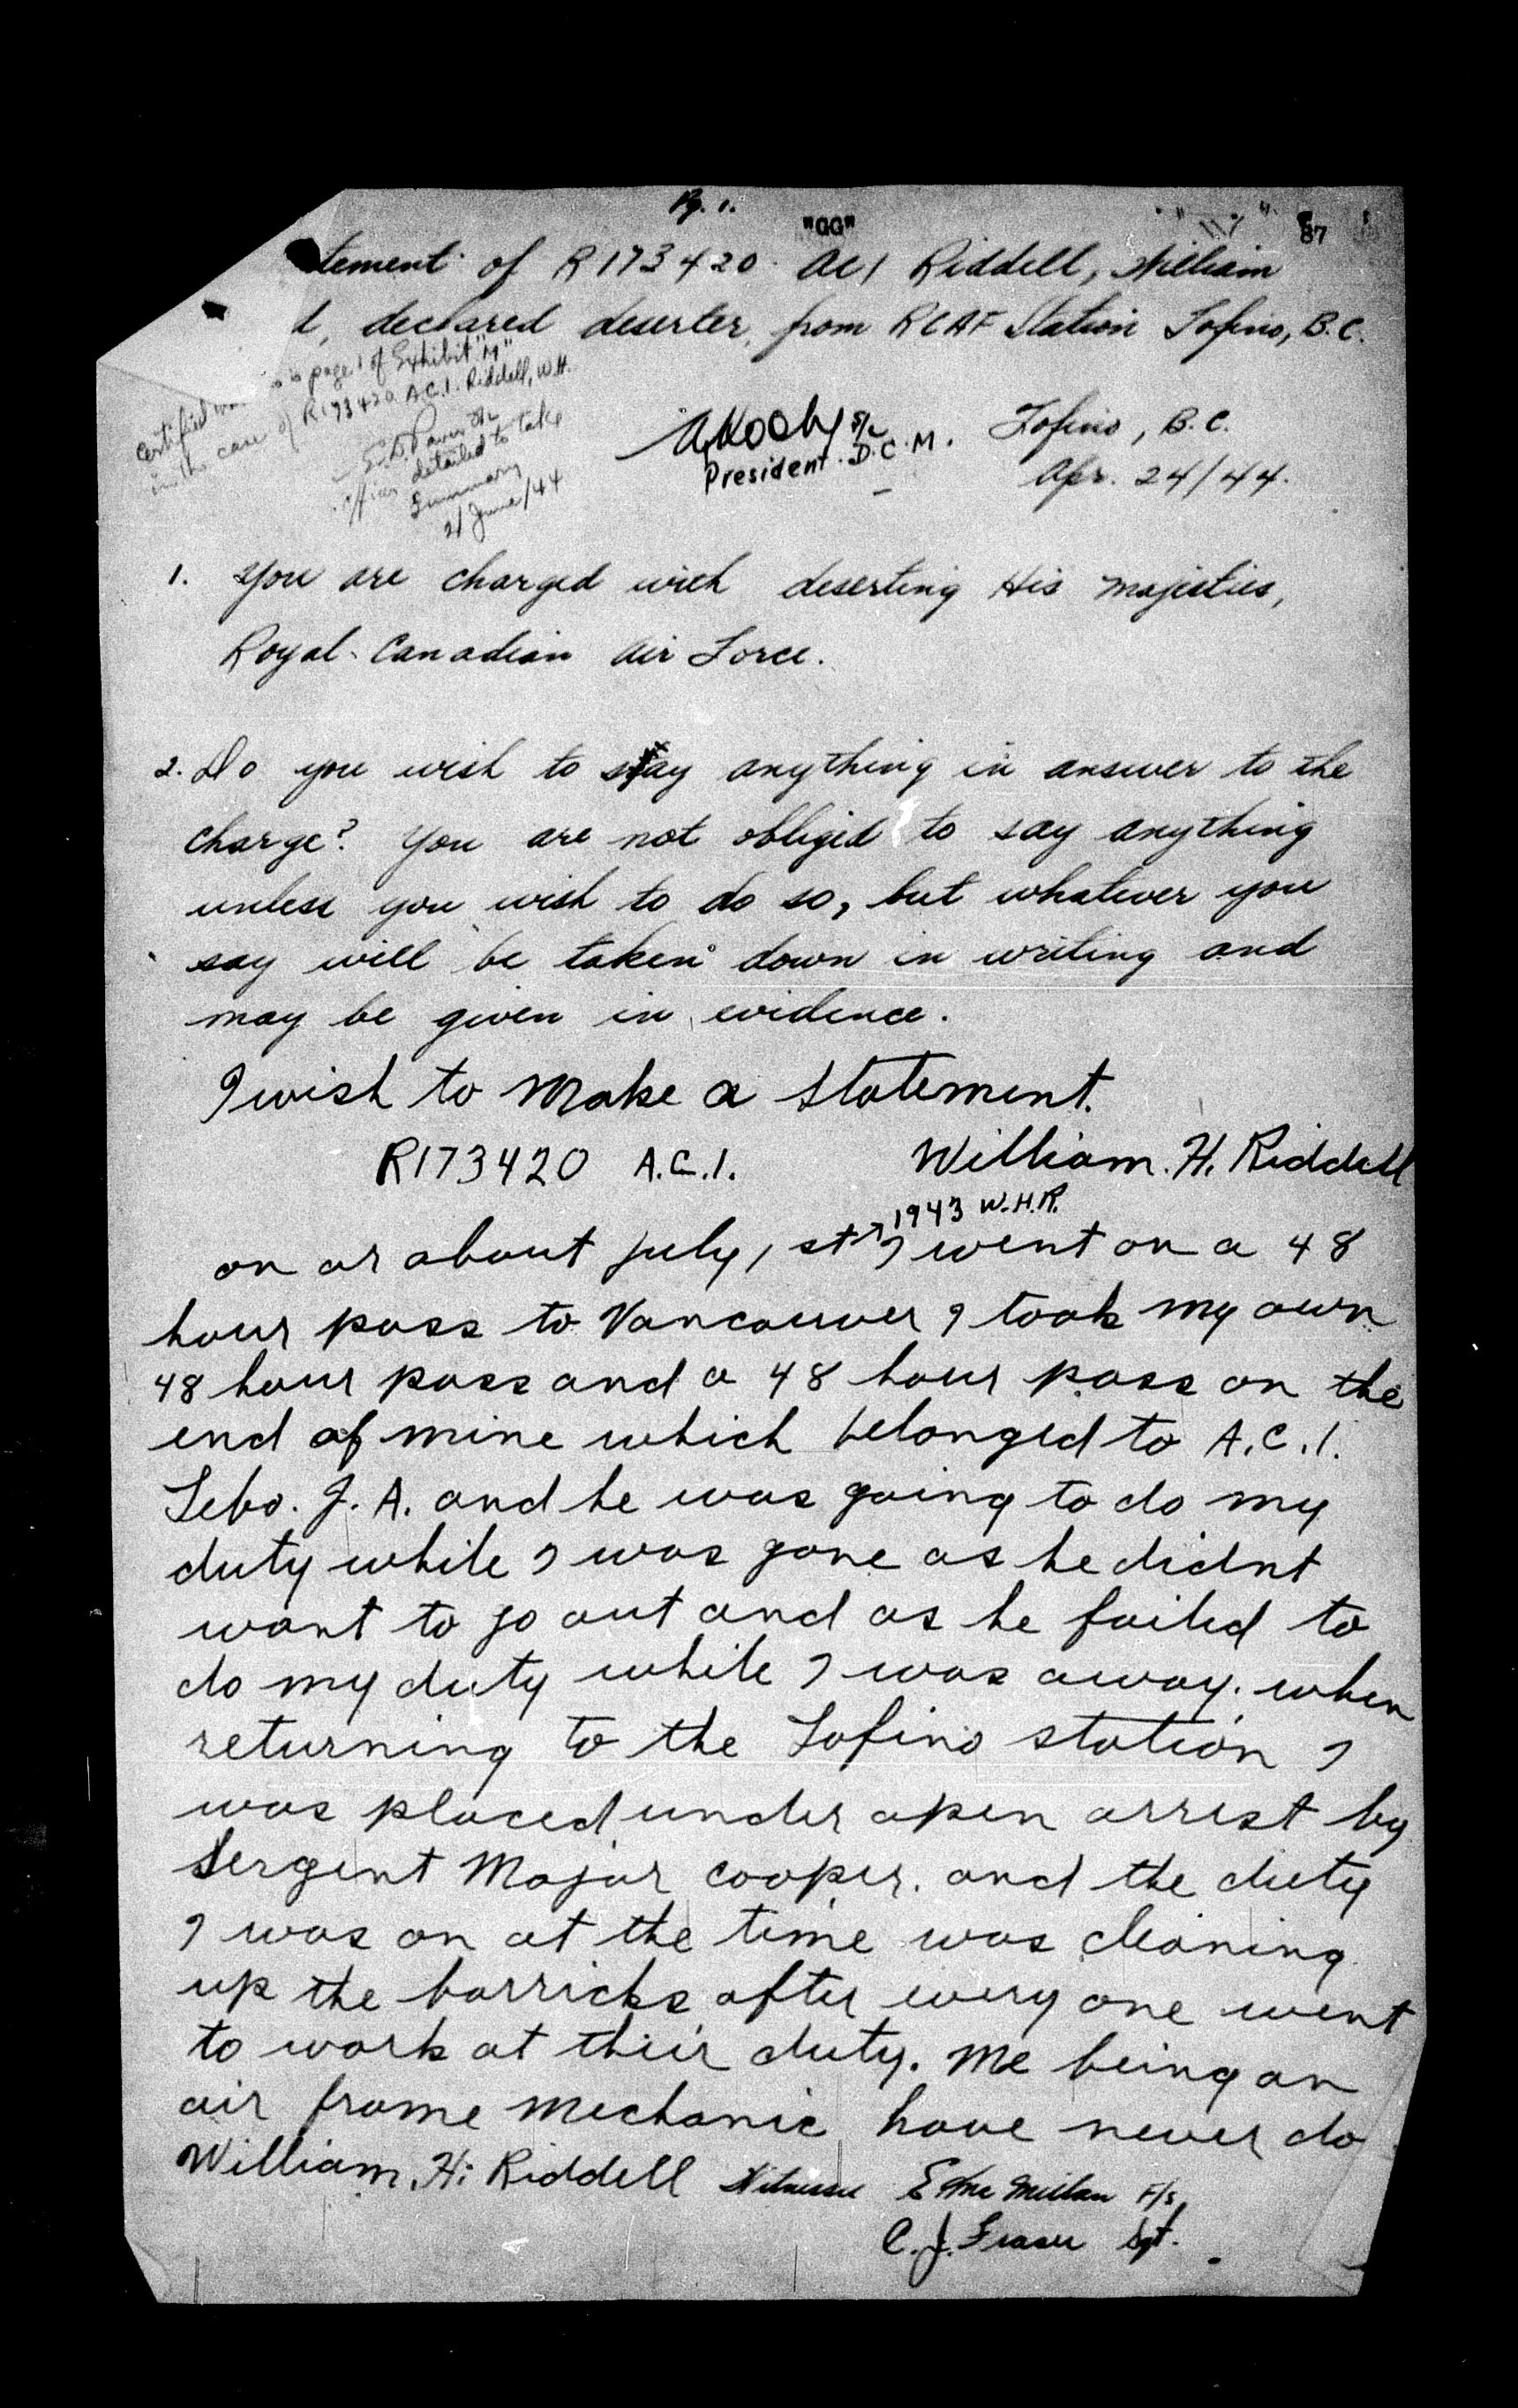 Pg. 1.
"GG"
87
tement of R173420 AC1 Riddell, William
d, declared deserter, from RCAF Station Tofino, B.C.
Certified page 1 of Exhibit "M"
in the case of R173420 A.C.1. Riddell, W.H.
officer detailed to take
Summary
21 June/44
President D.C.M.
Tofino, B.C.
Apr. 24/44.
1. You are charged with deserting His Majesties,
Royal Canadian Air Force.
2. Do you wish to say anything in answer to the
charge? You are not obliged to say anything
unless you wish to do so, but whatever you
say will be taken down in writing and
may be given in evidence.
I wish to make a statement.
R173420 A.C.1. William. H. Riddell
1943 W.H.R.
on or about july, 1 st I went on a 48
hour pass to Vancouver I took my own
48 hour pass and a 48 hour pass on the
end of mine which belonged to A.C.1.
Lebo. J. A. and he was going to do my
duty while I was gone as he didnt
want to go out and as he failed to
do my duty while I was away. when
returning to the Tofino station I
was placed under open arrest by
Sergent Major cooper. and the duty
I was on at the time was cleaning
up the barricks after every one went
to work at their duty. Me being an
air frame mechanic have never do
William. H. Riddell Witnesse E McMillan F/S
C. J. Fraser Sgt.